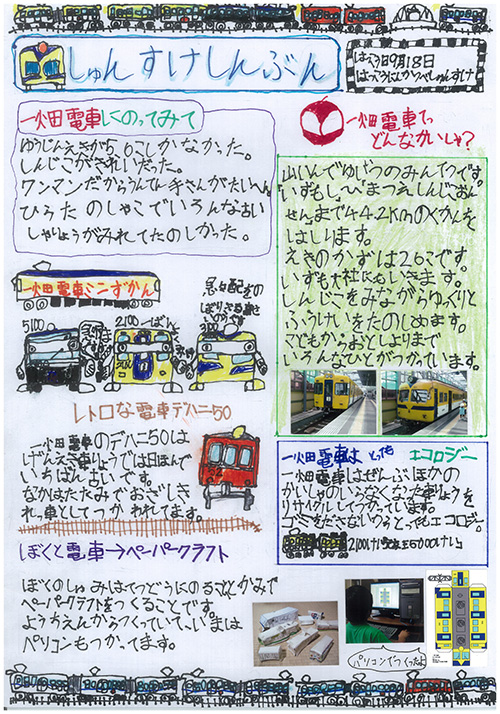 しゅんすけしんぶん
はっこう日9月18日
一畑電車にのってみて
ゆうじんえきが5、6こしかなかった。
しんじこがきれいだった。
ワンマンだからうんてん手さんがたいへん
ひらた のしゃこでいろんな古い
しゃりょうがみれてたのしかった。
一畑電車って
どんなかいしゃ?
山いんでゆいつのみんてつです。
いずもし〜まつえしんじこおん
せんまで42.2kmのくかんを
はしります。
えきのかずは26こです。
いずも大社にもいきます。
しんじこをみながらゆっくりと
ふうけいをたのしめます。
こどもからおとしよりまで
いろんなひとがつかっています。
一畑電車ミニずかん
5100
2100
レトロな電車デハニ50
一畑電車のデハニ50は
げんえき車りょうでは日ほんで
いちばん古いです。
なかはたたみでおざしき
れっ車としてつかわれてます。
一畑電車は とっても エコロジー
一畑電車はぜんぶほかの
かいしゃのいらなくなった車りょうを
リサイクルしてつかっています。
ゴミをださないからとってもエコロジー。
ぼくと電車→ペーパークラフト
ぼくのしゅみはてつどうにのることとかみで
ペーパークラフトをつくることです。
ようちえんからつくっていて、いまは
パソコンもつかってます。
パソコンでつくったよ